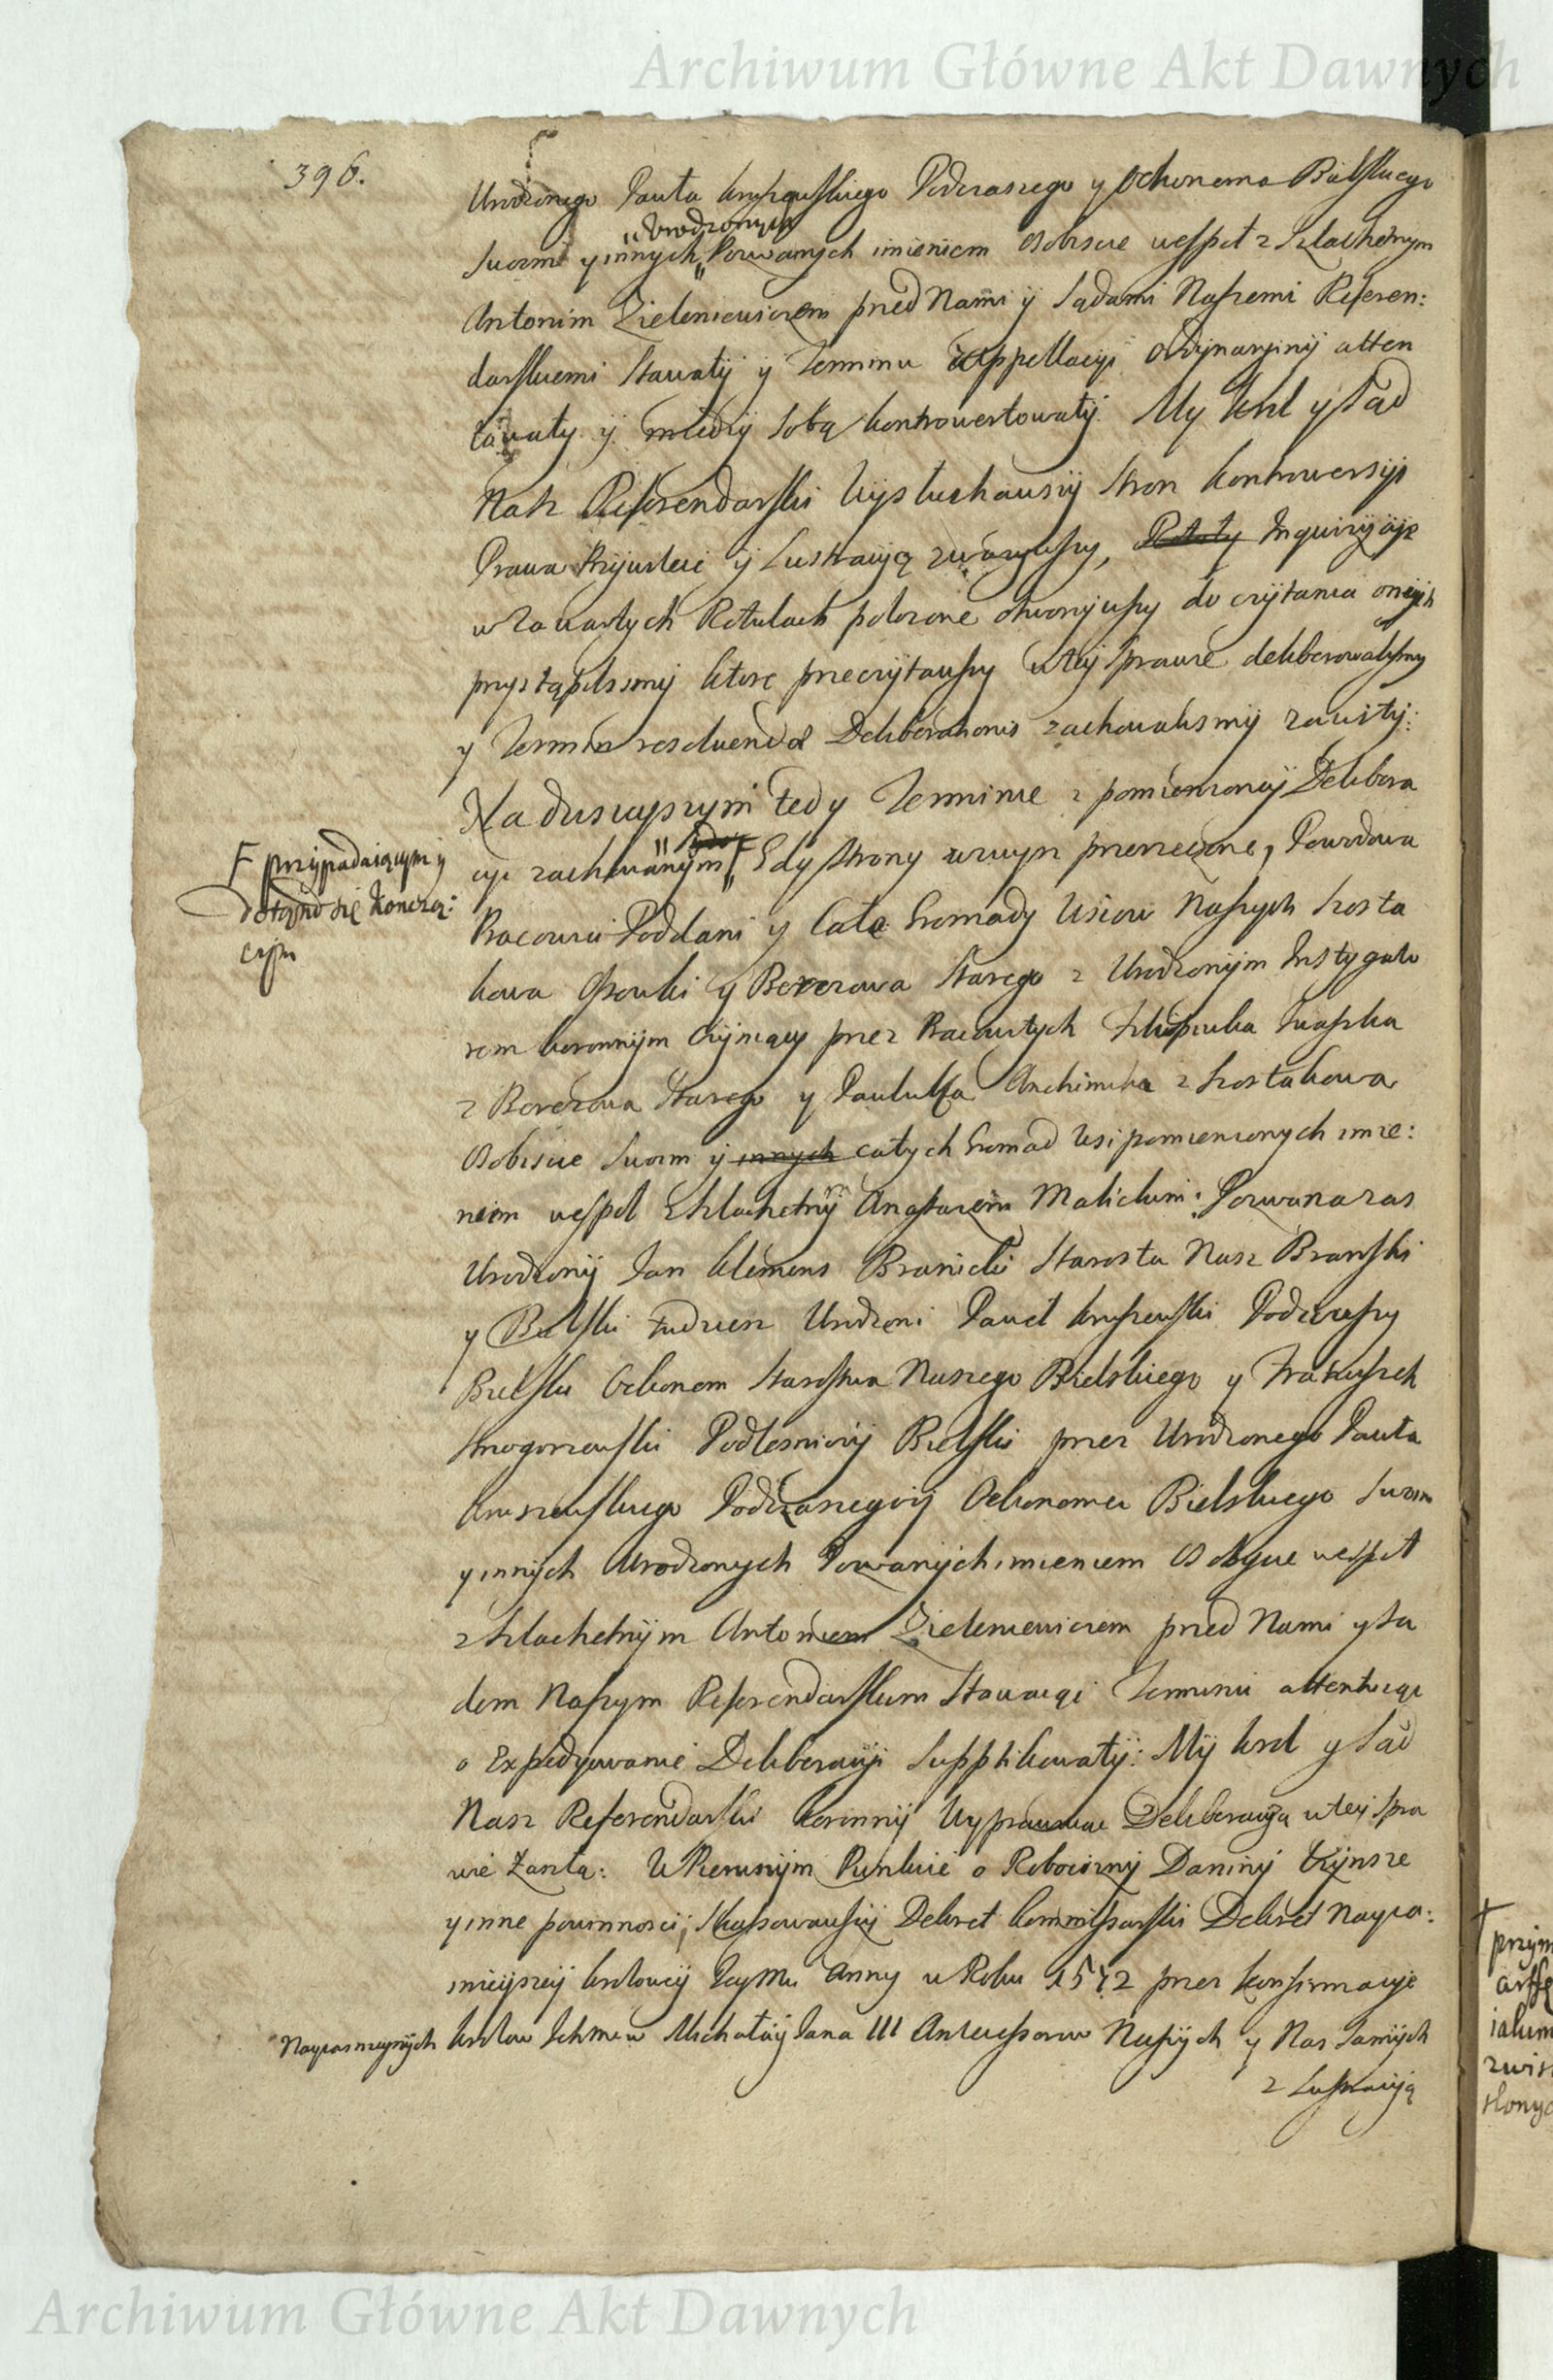 Archiwum Główne Akt Dawnych
396.
Urodzonego Pawła Kruszewskiego Podczaszego y Oekonoma Bielskiego
Urodzonych
Swoim y innych Pozwanych imieniem Osobiscie wespoł z Szlachetnym
Antonim Zieleniewiczem przed Nami ÿ Sądami Naszemi Referen:
darskiemi Stawałÿ ÿ Terminu Appellacÿi Ordÿnarÿinÿ atten
towały ÿ miedzÿ Sobą kontrowertowałÿ. My Krol y Sąd
Nasz Referendarski Wÿsłuchawszÿ Stron kontrowersÿi
Prawa Przÿwileie ÿ Lustracÿą zwazywszy, Inquizÿcÿe
w Zawartych Rotulach połozone otworzÿwszy do czÿtania onÿch
przystąpilismÿ ktore przeczÿtawszy w teÿ Sprawie deliberowalismy
y Termin resolvendæ Deliberationis zachowalismÿ zawitÿ:
Na dzisieyszym tedy Terminie z pomienionéÿ Delibera
cyi zachowanÿm Gdy Strony wzwyz przerzeczone, Powodowa
F przÿpadaiącym y
dotąd się Koncząi:
cÿm
Pracowici Poddani y Całe Gromady Wsiow Naszych Szosta
kowa Osowki y Berezowa Starego z Urodzonÿm Instygato
rem koronnÿm Czÿniący przez Pracowitych Iwaszka
z Berezowa Starego y Pawluka Anchimiuka z Szostakowa
Osobiscie Swoim ÿ innych całych Gromad Wsi pomienionych imie:
niem wespoł z Szlachetnÿm Anastazem Malickim: Pozwana zas
Urodzonÿ Jan Klemens Branicki Starosta Nasz Branski
y Bielski tudziesz Urodzeni Paweł Kruszewski Podczaszy
Bielski Oekonom Starostwa Naszego Bielskiego y Franciszek
Smogorzewski Podlesniczÿ Bielski przez Urodzonego Pawła
Kruszewskiego Podczaszego ÿ Oekonoma Bielskiego Swoim
y innÿch Urodzonych Pozwanÿch imieniem Osobiscie wespoł
z Szlachetnÿm Antonim Zieleniewiczem przed Nami y Są
dem Naszym Referendarskim Stawaiąc Terminu attentuiąc
o Expedyowanie Deliberacÿi Supplikowałÿ: Mÿ Krol y Sąd
Nasz Referendarski koronnÿ Deliberacÿą w teÿ Spra
wie Zaszłą: W Pierwszÿm Punkcie o Robociznÿ Daninÿ Czÿnsze
y inne powinnoscii; Skassowawszÿ Dekret kommissarski Dekret Nayia:
snieÿszeÿ Krolowéÿ Jeÿmci Anny w Roku 1572 przez konfirmacye
Nayiasnieyszÿch Krolow Ichmciow Michała ÿ Jana III Antecessorow Naszÿch y Nas Samÿch
z Lustracÿą
Archiwum Główne Akt Dawnych